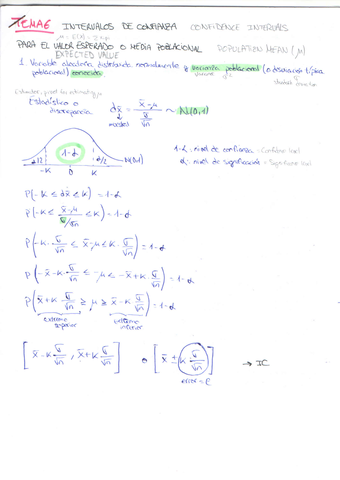 TEMA 6 INTERVALOS DE CONFIANZA CONFIDENCE INTERVALS
PARA EL VALOR ESPERADO O MEDIA POBLACIONAL POPULATION MEAN (μ)
EXPECTED VALUE
1. Variable aleatoria distribuida normalmente y varianza poblacional (o desviación típica
poblacional) conocida
Estadístico o
discrepancia
d_x̄ = (x̄ - μ) / (σ/√n) ~ N(0,1)
1-α
α/2 α/2 N(0,1)
-K 0 K
1-α: nivel de confianza - Confidence level
α: nivel de significación - Significance level
P(-K ≤ d_x̄ ≤ K) = 1-α
P(-K ≤ (x̄ - μ) / (σ/√n) ≤ K) = 1-α
P(-K · σ/√n ≤ x̄ - μ ≤ K · σ/√n) = 1-α
P(-x̄ - K · σ/√n ≤ -μ ≤ -x̄ + K · σ/√n) = 1-α
P(x̄ + K · σ/√n ≥ μ ≥ x̄ - K · σ/√n) = 1-α
extremo superior extremo inferior
[x̄ - K σ/√n , x̄ + K σ/√n] o [x̄ ± K · σ/√n] → IC
error = e